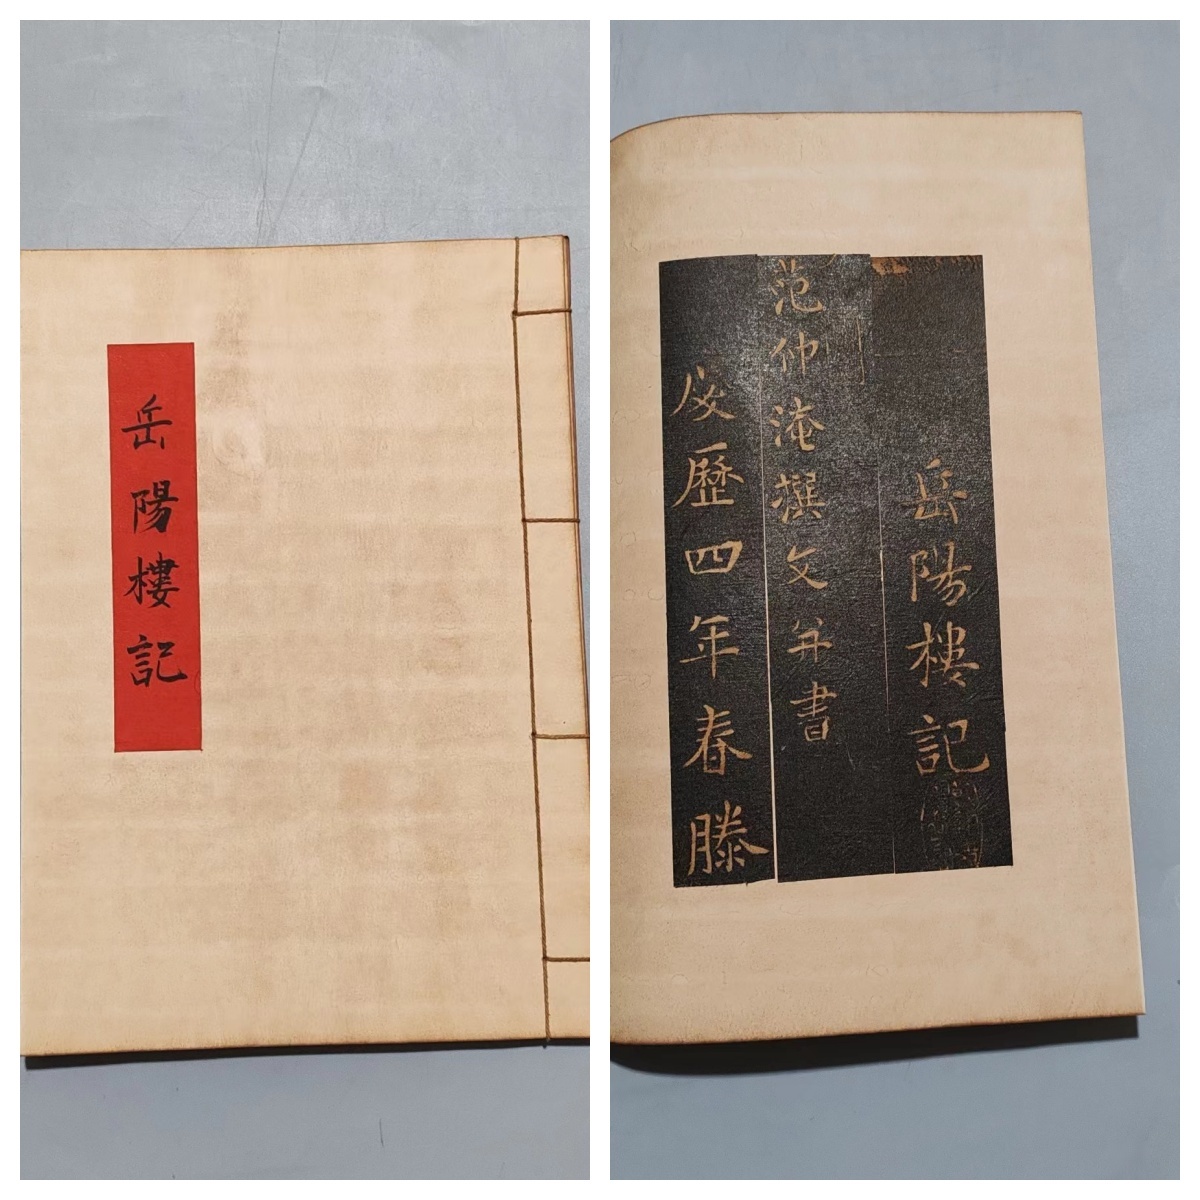 岳陽樓記
岳陽樓記
范仲淹撰文并書
慶歷四年春滕